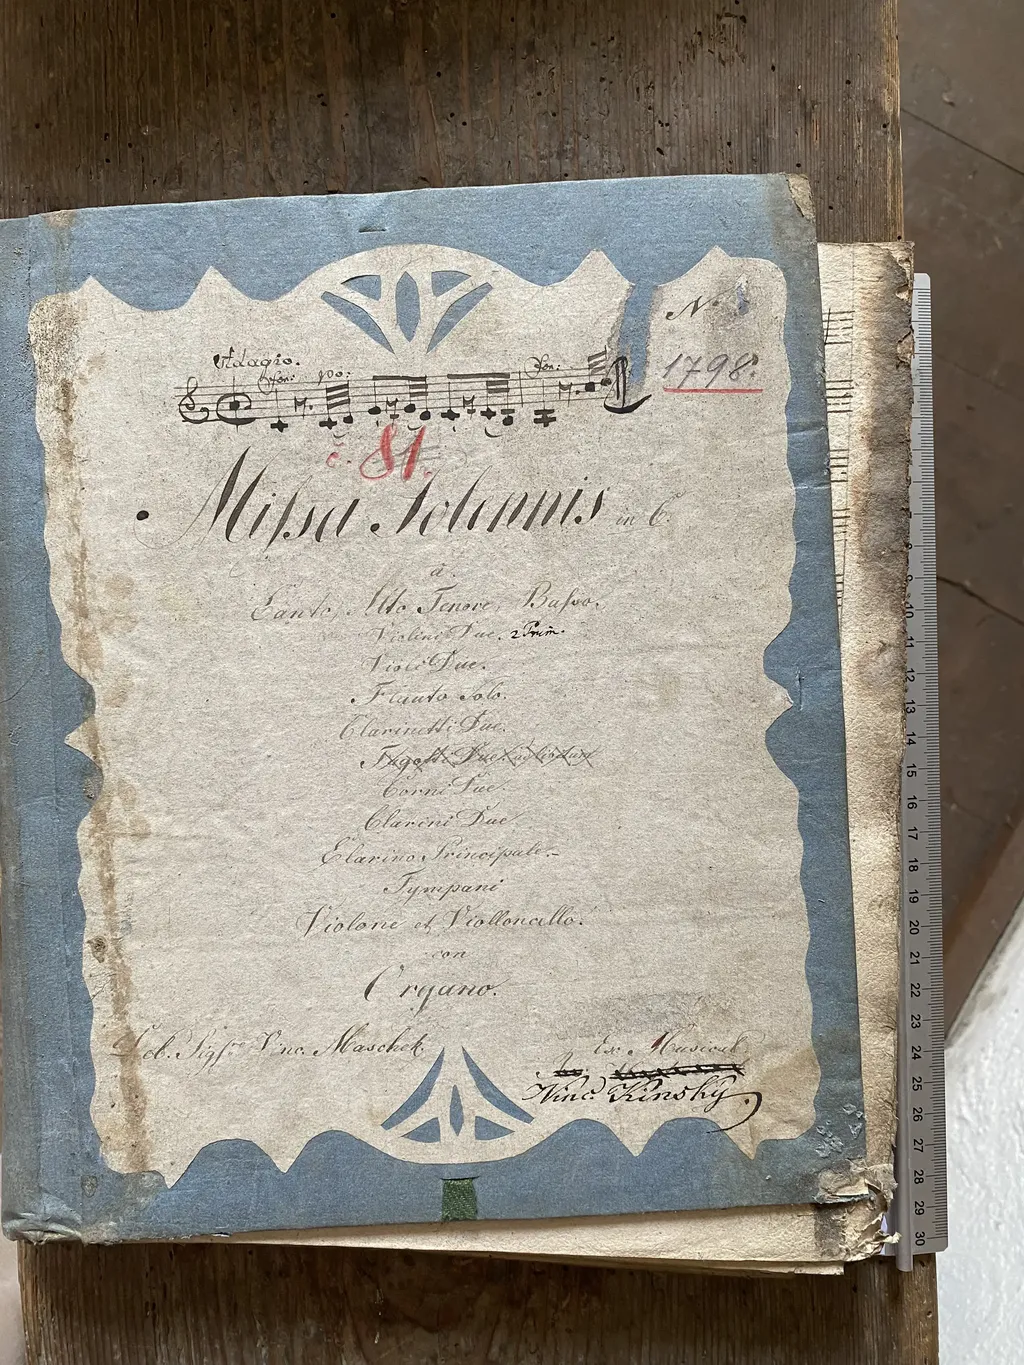 No
1798.
Adagio.
for: po: for:
č. 81.
Missa Solennis in C.
à.
Canto, Alto Tenore, Basso.
Violini Due. 2 Prim.
Viole Due.
Flauto Solo.
Clarinetti Due.
Fagotti Due ad libitum
Corni Due.
Clarini Due
Clarino Principale.
Tympani
Violone et Violloncello.
con
Organo.
Vinc. Maschek.
Ex Musical
Vinc. Kinsky.
9
10
11
12
13
14
15
16
17
18
19
20
21
22
23
24
25
26
27
28
29
30